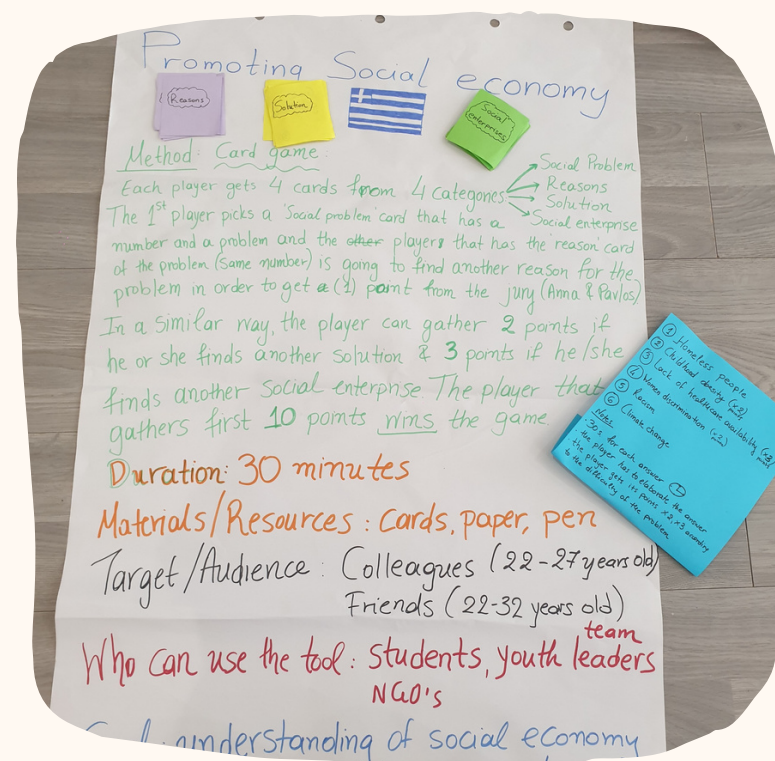 Promoting Social economy
Reasons
Solution
Social
enterprises
Method: Card game:
Each player gets 4 cards from 4 categories
Social Problem
Reasons
Solution
Social enterprise
The 1st player picks a 'Social problem' card that has a
number and a problem and the other players that has the 'reason' card
of the problem (same number) is going to find another reason for the
problem in order to get a (1) point from the jury (Anna & Pavlos)
In a similar way, the player can gather 2 points if
he or she finds another solution & 3 points if he/she
finds another social enterprise. The player that
gathers first 10 points wins the game.
Duration: 30 minutes
Materials/Resources : Cards, paper, pen
Target/Audience : Colleagues (22-27 years old)
Friends (22-32 years old)
Who can use the tool : students, youth team leaders
NGO's
understanding of social economy
① Homeless people
② Childhood obesity (x2)
③ Lack of healthcare availability (x3)
④ Women discrimination (x2)
⑤ Racism
⑥ Climate change
Notes
30s for each answer
the player has to elaborate the answer
the player gets its points x2, x3 according
to the difficulty of the problem